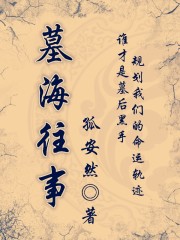 墓海往事
谁才是墓后黑手
规划我们的命运轨迹
孤安然◎著